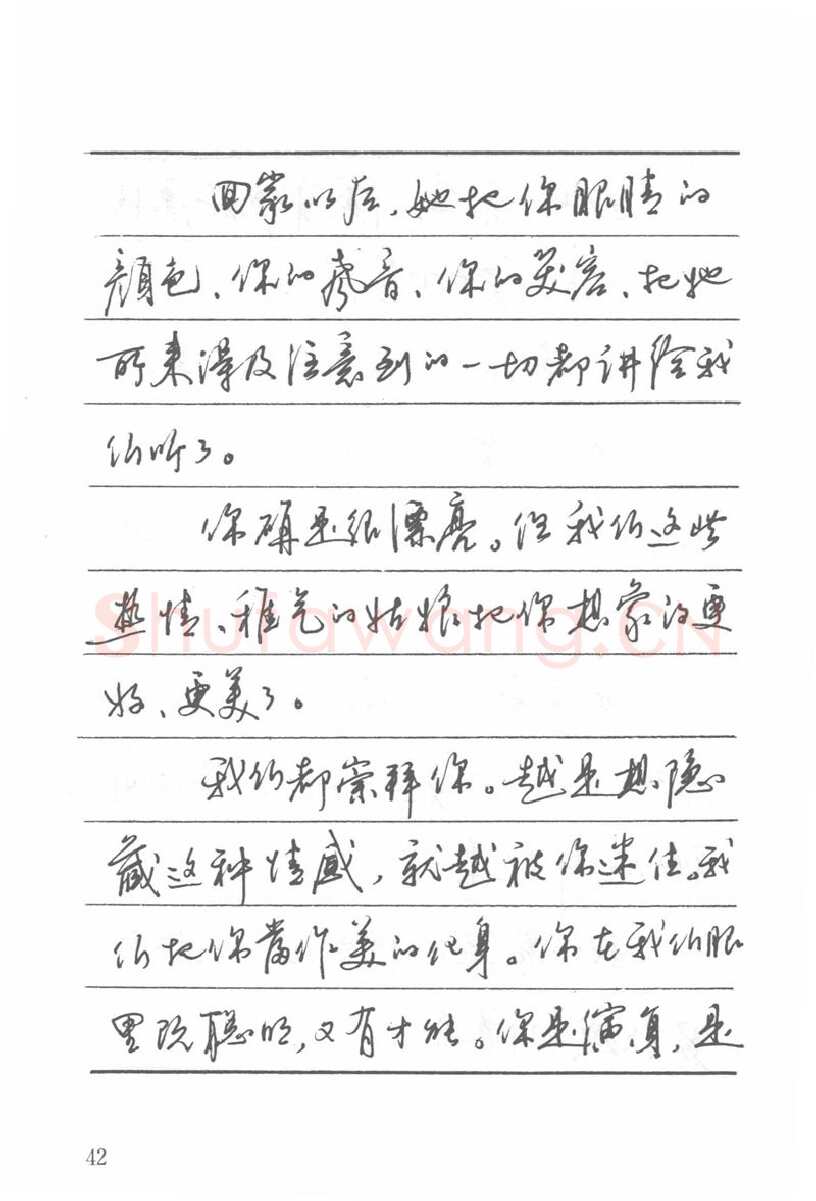 回家以后、她把你眼睛的
颜色、你的声音、你的笑容、把她
所来得及注意到的一切都讲给我
们听了。
你确是很漂亮。但我们这些
热情、稚气的姑娘把你想象得更
好、更美了。
Shufawang.CN
我们都崇拜你。越是想隐
藏这种情感，就越被你迷住。我
们把你当作美的化身。你在我们眼
里既聪明，又有才能。你是演员，是
42